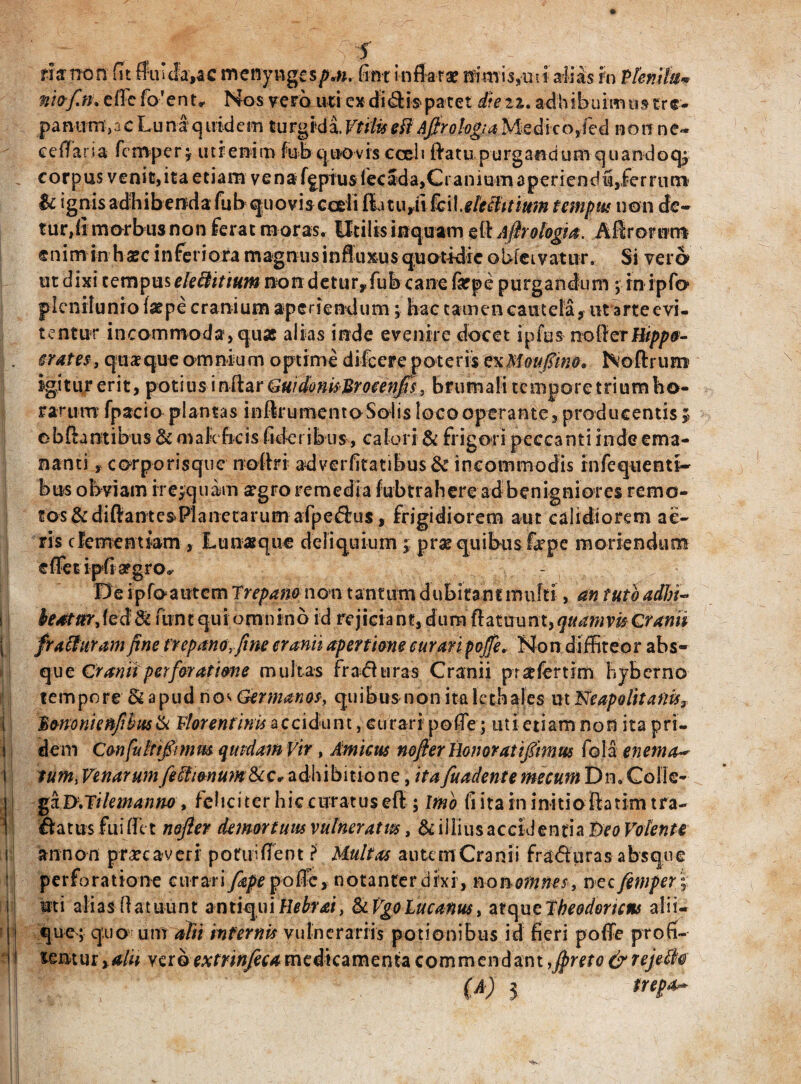 5
ria non sit fluida, ac menynges p.n. sint inflatæ nimis, uti aliàs in Plenilu-
nio s.n. esse solent. Nos verò uti ex dictis patet die 22. adhibuimus tre-
panum, ac Lunâ quidem turgidâ. Utilis est Astrologia Medico, sed non ne-
cessaria semper; uti enim sub quovis cœli statu purgandum quandoq;
corpus venit, ita etiam vena sępius secāda, Cranium aperiendū, ferrum
& ignis adhibenda sub quovis cœli statu, si scil. electitium tempus non de-
tur, si morbus non ferat moras. Utilis inquam est Astrologia. Astrorum
enim in hæc inferiora magnus influxus quotidie observatur. Si verò
ut dixi tempus electitium non detur, sub cane sæpè purgandum; in ipso
plenilunio sæpè cranium aperiendum; hac tamen cautelâ, ut arte evi-
tentur incommoda, quæ alias inde evenire docet ipsus noster Hippo-
crates, quæque omnium optimè discere poteris ex Mouffino. Nostrum
igitur erit, potius instar Guidonis Brocensis, brumali tempore trium ho-
rarum spacio plantas instrumento Solis loco operante, producentis;
obstantibus & maleficis sideribus, calori & frigori peccanti inde ema-
nanti, corporisque nostri adversitatibus & incommodis insequenti-
bus obviam ire; quàm ægro remedia subtrahere ad benigniores remo-
tos & distantes Planetarum aspectus, frigidiorem aut calidiorem aë-
ris clementiam, Lunæque deliquium; præ quibus sæpe moriendum
esset ipsi ægro.
De ipso autem Trepano non tantum dubitant multi, an tutò adhi-
beatur, sed & sunt qui omninò id rejiciant, dum statuunt, quamvis Cranii
fracturam sine trepano, sine cranii apertione curari posse. Non diffiteor abs-
que Cranii perforatione multas fracturas Cranii præsertim hyberno
tempore & apud nos Germanos, quibus non ita lethales ut Neapolitanis,
Bononiensibus & Florentinis accidunt, curari posse; uti etiam non ita pri-
dem Consultissimus quidam Vir, Amicus noster Honoratissimus solâ enema-
tum, Venarum sectionum &c. adhibitione, ita suadente mecum Dn. Colle-
gâ D. Tilemanno, feliciter hic curatus est; Imò si ita in initio statim tra-
ctatus fuisset noster demortuus vulneratus, & illius accidentia Deo Volente
annon præcaveri potuissent? Multas autem Cranii fracturas absque
perforatione curari sæpe posse, notanter dixi, non omnes, nec semper;
uti alias statuunt antiqui Hebræi, & Ugo Lucanus, atque Theodoricus alii-
que; quorum alii internis vulnerariis potionibus id fieri posse profi-
tentur, alii verò extrinseca medicamenta commendant, spreto & rejecto
(A) 3 trepa-